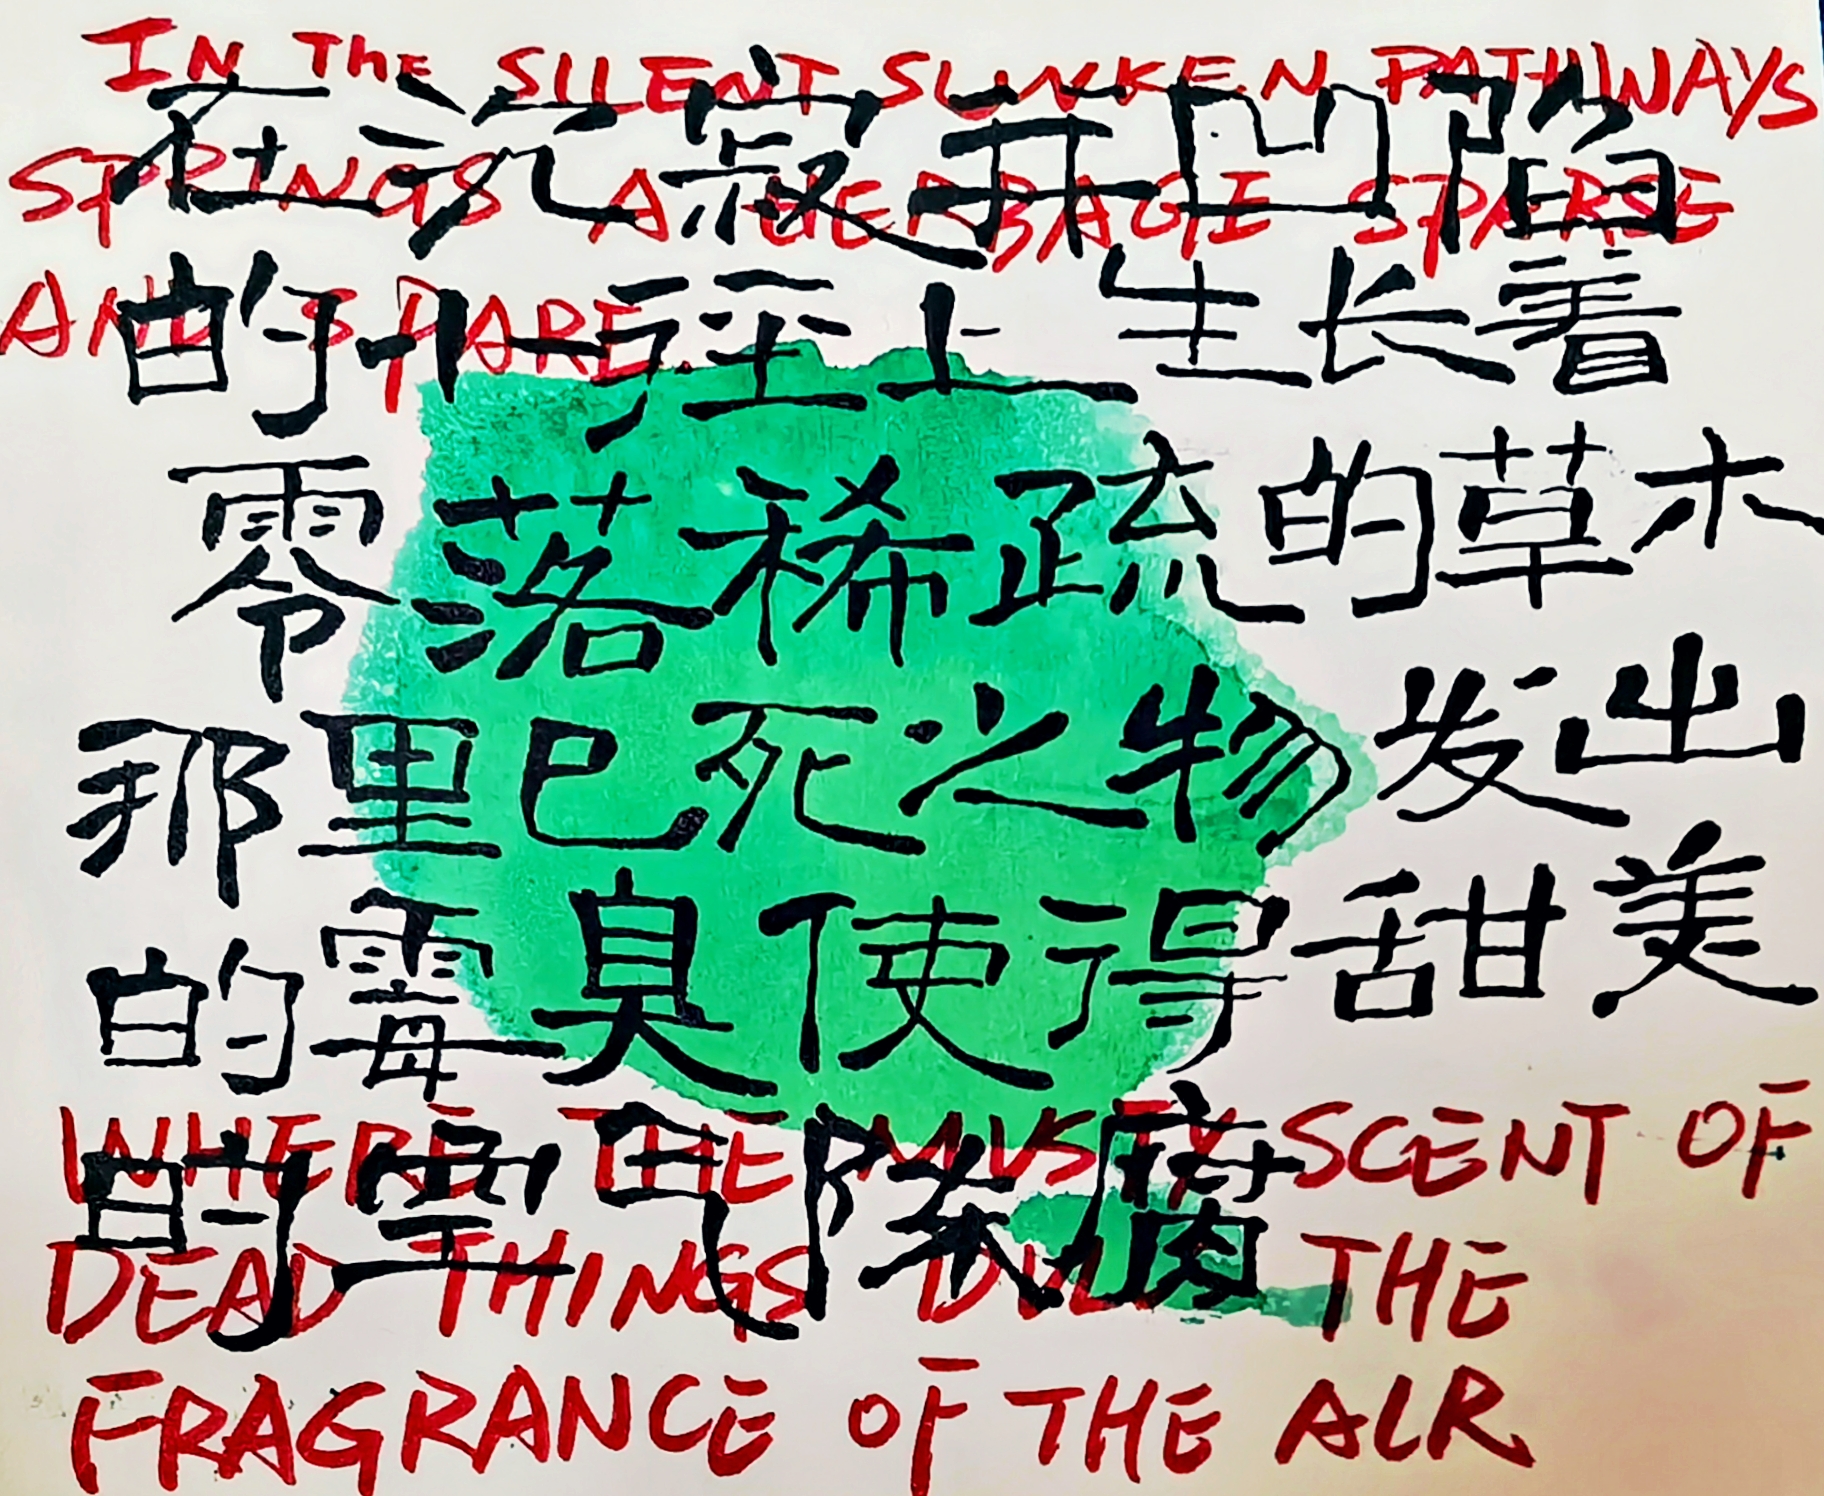 IN THE SILENT SUNKEN PATHWAYS
SPRINGS A HERBAGE SPARSE
AND SPARE.
在沉寂并凹陷
的小径上生长着
零落稀疏的草木
那里已死之物发出
的霉臭使得甜美
的空气陈腐
WHERE THE MUSTY SCENT OF
DEAD THINGS DULLS THE
FRAGRANCE OF THE AIR